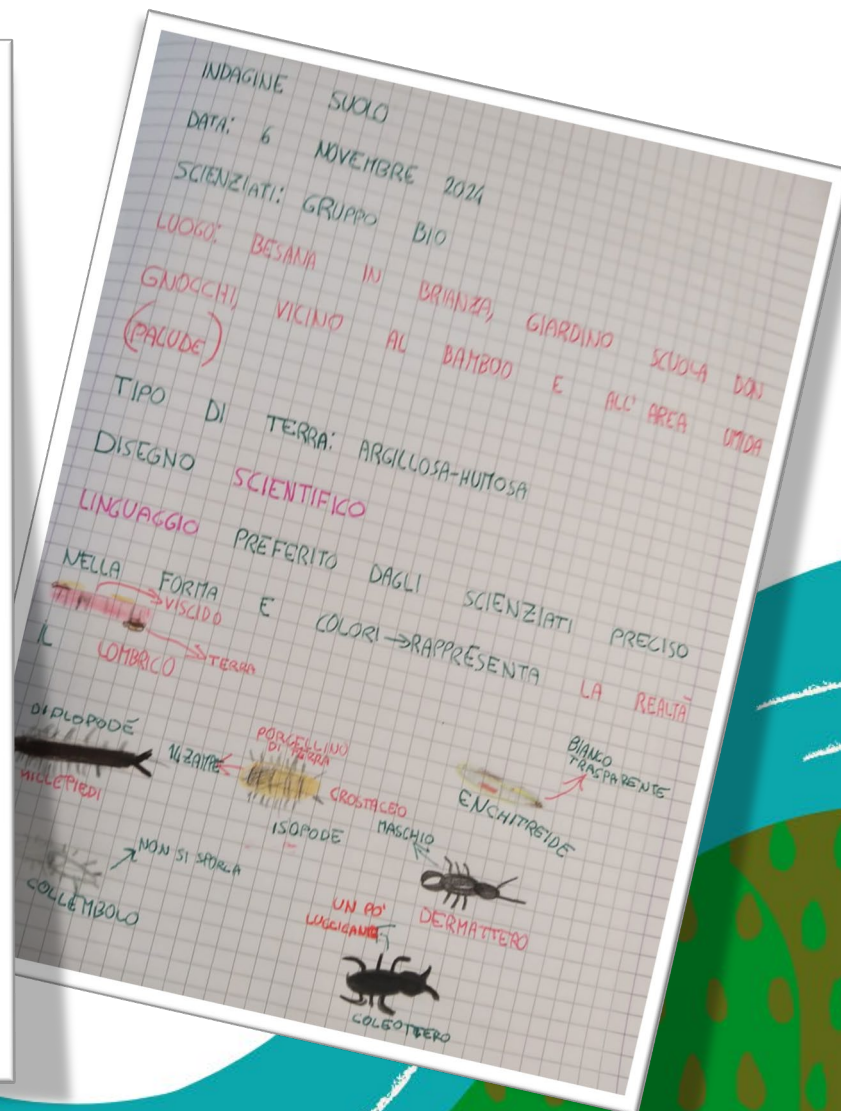 INDAGINE SUOLO
DATA: 6 NOVEMBRE 2024
SCIENZIATI: GRUPPO BIO
LUOGO: BESANA IN BRIANZA, GIARDINO SCUOLA DON
GNOCCHI, VICINO AL BAMBOO E ALL'AREA UMIDA
(PALUDE)
TIPO DI TERRA: ARGILLOSA-HUMOSA
DISEGNO SCIENTIFICO
LINGUAGGIO PREFERITO DAGLI SCIENZIATI PRECISO
NELLA FORMA E COLORI → RAPPRESENTA LA REALTÀ
VISCIDO
IL LOMBRICO
TERRA
DIPLOPODE
MILLEPIEDI
14 ZAMPE
PORCELLINO
DI TERRA
CROSTACEO
ISOPODE
BIANCO
TRASPARENTE
ENCHITREIDE
NON SI SPORCA
COLLEMBOLO
MASCHIO
DERMATTERO
UN PO'
LUCCICANTE
COLEOTTERO